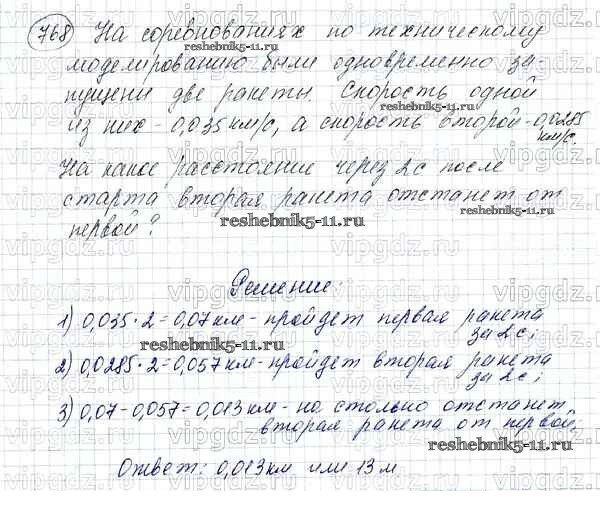 768 На соревнованиях по техническому
моделированию были одновременно за-
пущены две ракеты. Скорость одной
из них - 0,035 км/с, а скорость второй - 0,0285
км/с.
На какое расстояние через 2с после
старта вторая ракета отстанет от
первой?
Решение:
1) 0,035 · 2 = 0,07 км - пройдет первая ракета
за 2с;
2) 0,0285 · 2 = 0,057 км - пройдет вторая ракета
за 2с;
3) 0,07 - 0,057 = 0,013 км - на столько отстанет
вторая ракета от первой.
Ответ: 0,013 км или 13 м
reshebnik5-11.ru
reshebnik5-11.ru
reshebnik5-11.ru
reshebnik5-11.ru
reshebnik5-11.ru
reshebnik5-11.ru
reshebnik5-11.ru
vipgdz.ru